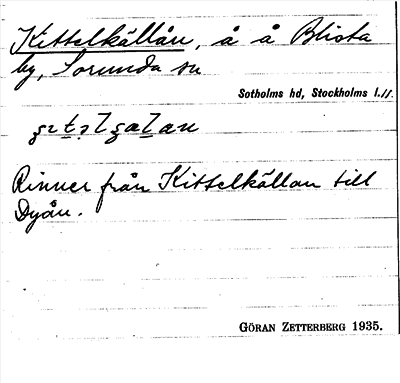 Kittelkällån, å å Blista
by, Sorunda sn
Sotholms hd, Stockholms l.
Rinner från Kittelkällan till
Dyån.
GÖRAN ZETTERBERG 1935.